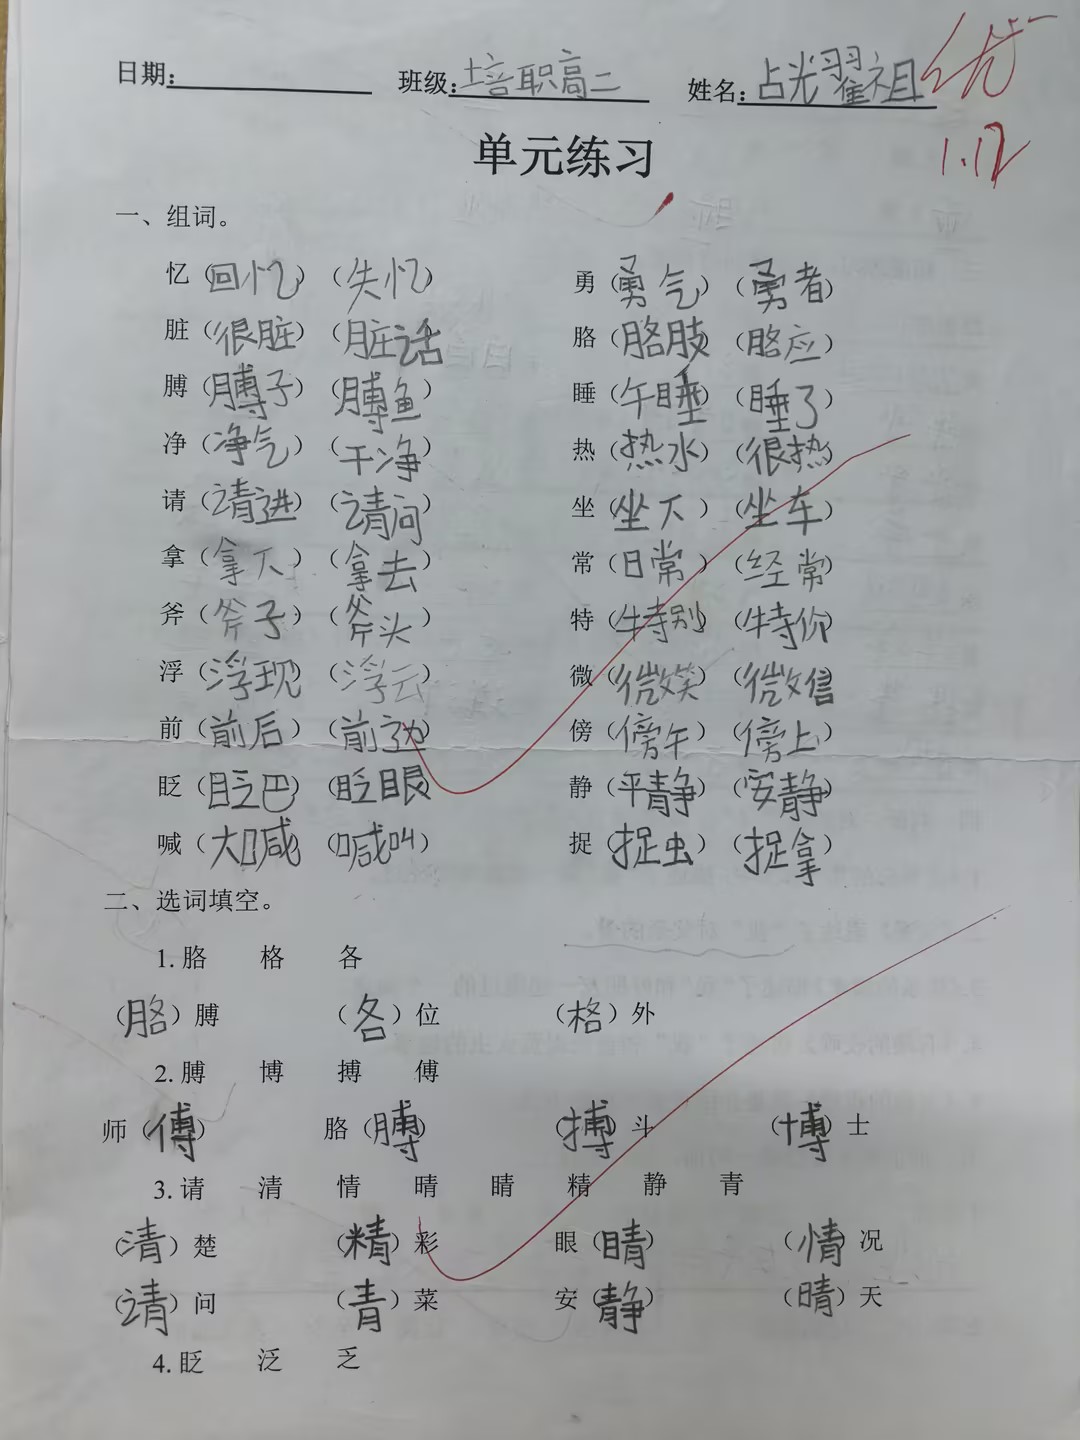 日期: 班级:培职高二 姓名:占光翟祖 优
1.17
单元练习
一、组词。
忆（回忆）（失忆） 勇（勇气）（勇者）
脏（很脏）（脏话） 胳（胳肢）（胳应）
膊（膊子）（膊鱼） 睡（午睡）（睡了）
净（净气）（干净） 热（热水）（很热）
请（请进）（请问） 坐（坐下）（坐车）
拿（拿下）（拿去） 常（日常）（经常）
斧（斧子）（斧头） 特（特别）（特价）
浮（浮现）（浮云） 微（微笑）（微信）
前（前后）（前边） 傍（傍午）（傍上）
眨（眨巴）（眨眼） 静（平静）（安静）
喊（大喊）（喊叫） 捉（捉虫）（捉拿）
二、选词填空。
1. 胳 格 各
（胳）膊 （各）位 （格）外
2. 膊 博 搏 傅
师（傅） 胳（膊） （搏）斗 （博）士
3. 请 清 情 晴 睛 精 静 青
（清）楚 （精）彩 眼（睛） （情）况
（请）问 （青）菜 安（静） （晴）天
4. 眨 泛 乏